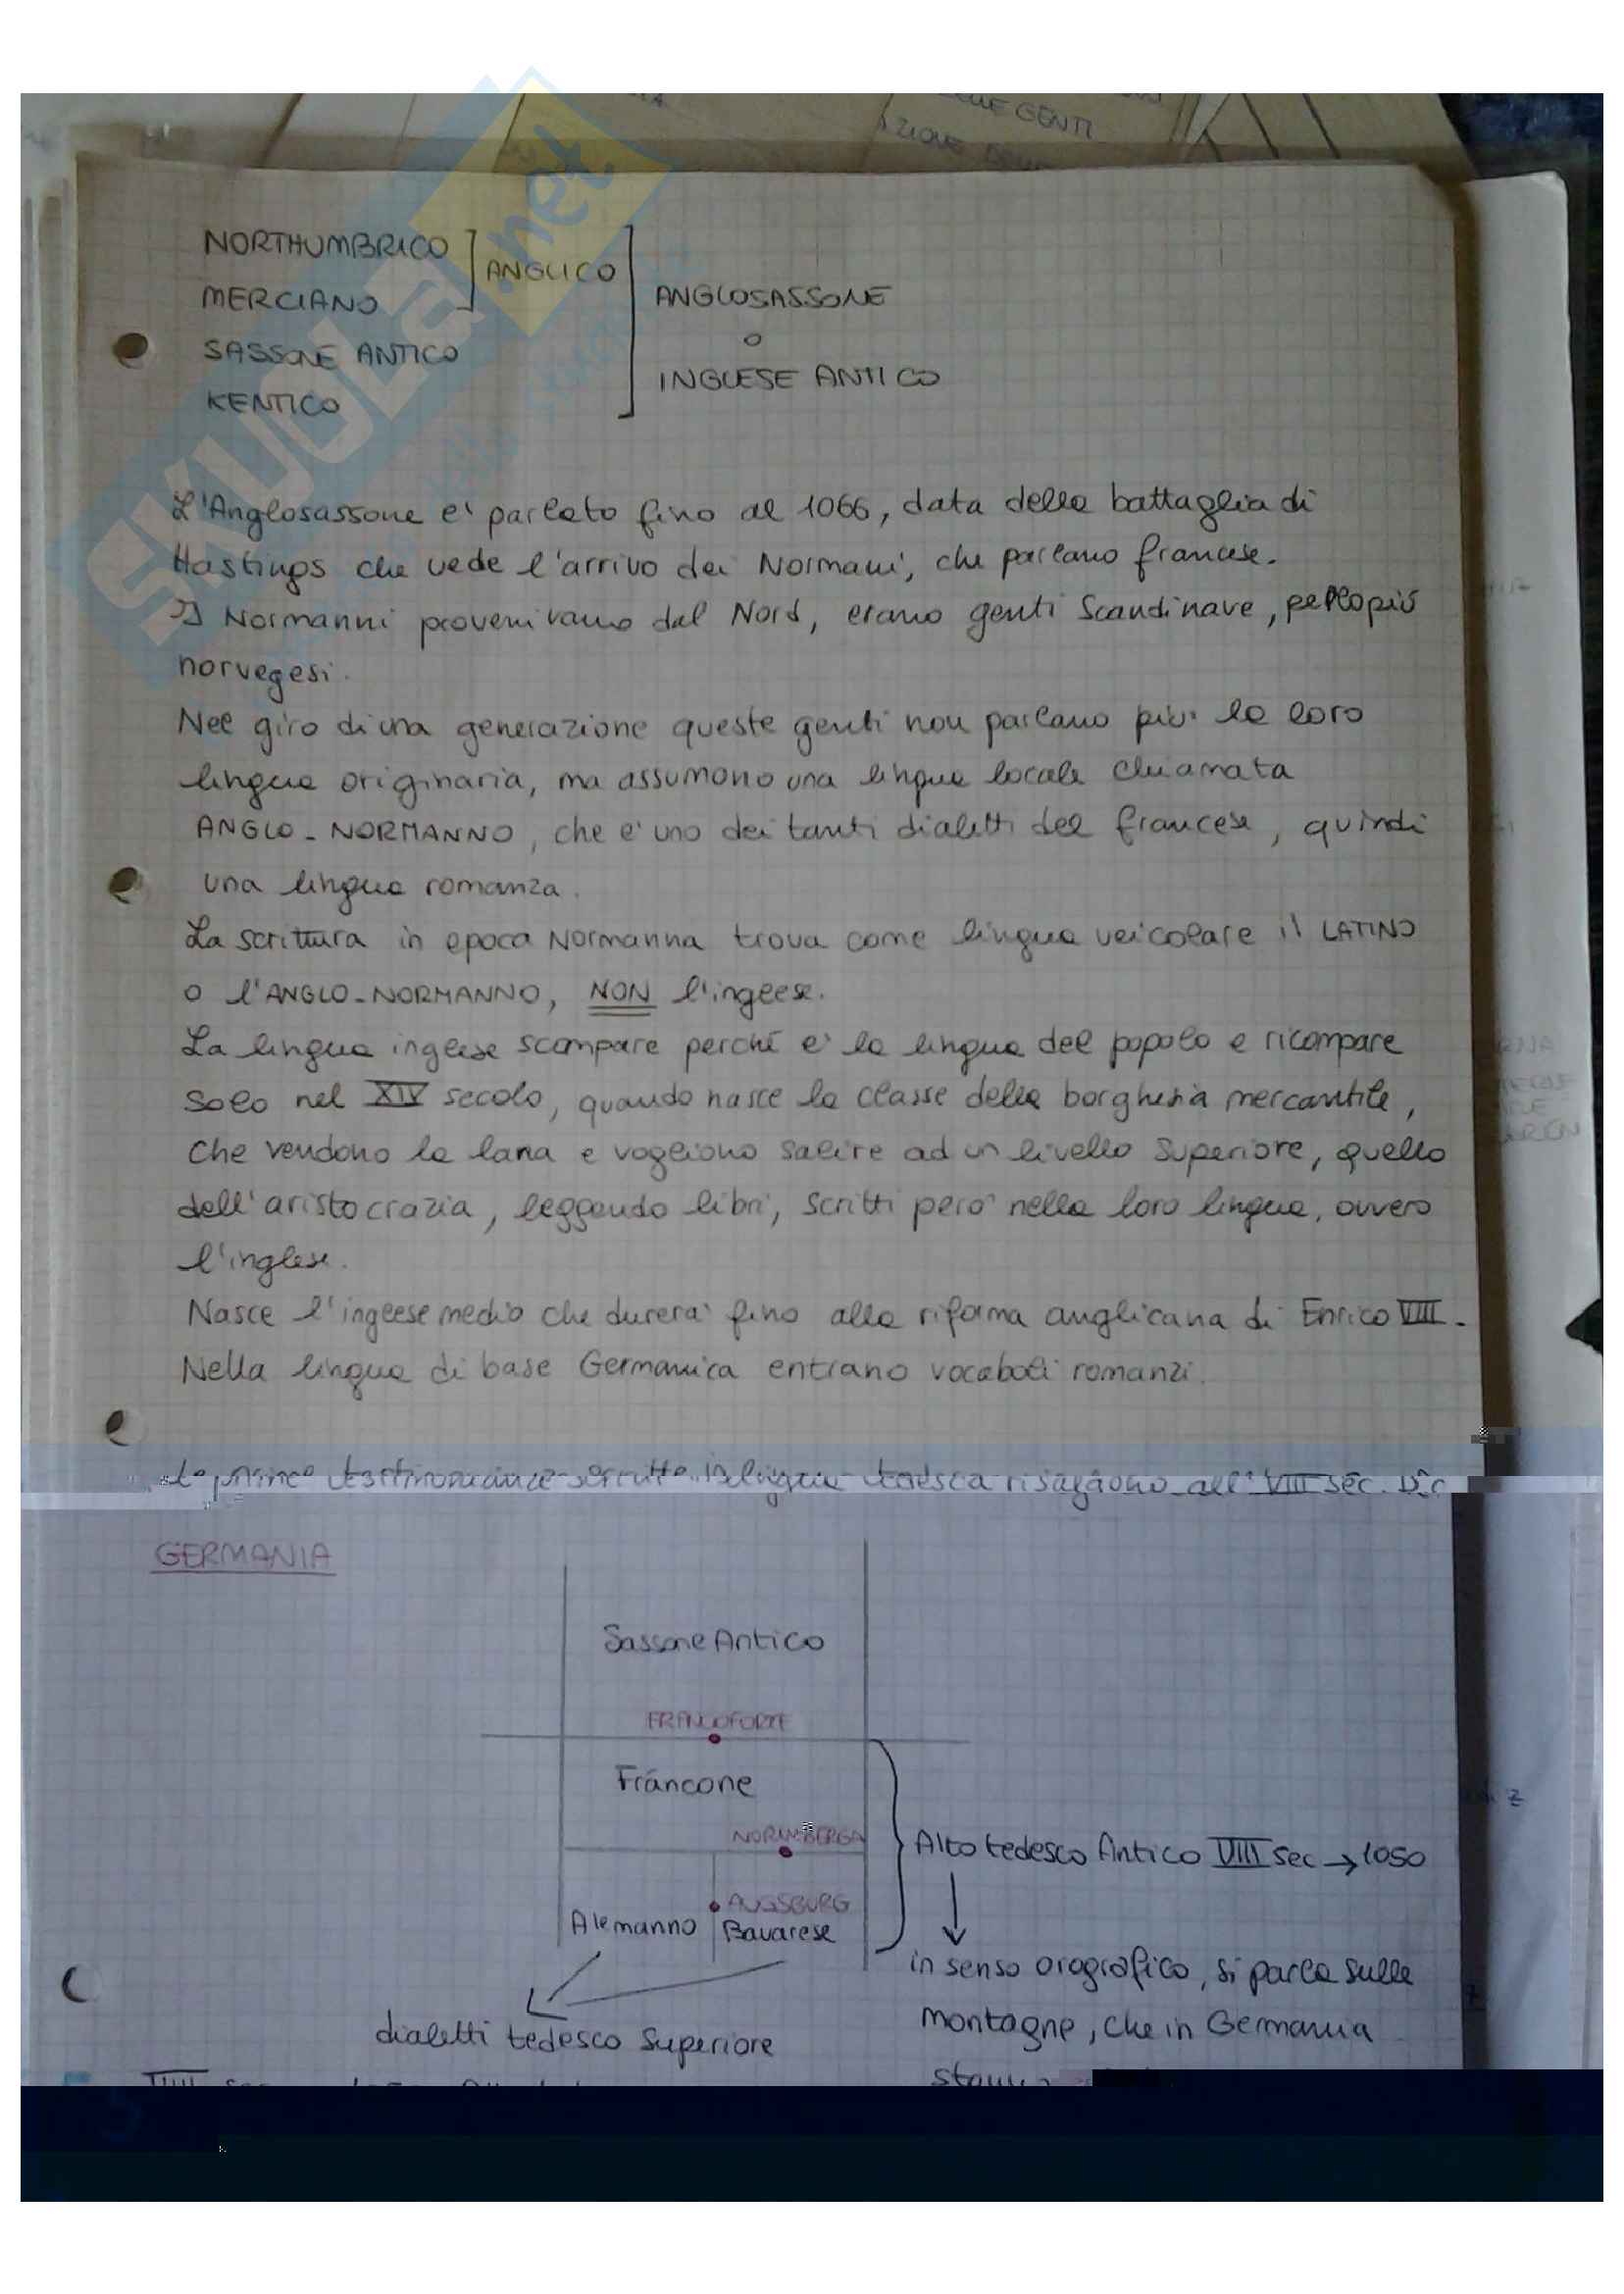 SKUOLA.net
NORTHUMBRICO
ANGLICO
MERCIANO
ANGLOSASSONE
SASSONE ANTICO
o
INGLESE ANTICO
KENTICO
L'Anglosassone e' parlato fino al 1066, data della battaglia di
Hastings che vede l'arrivo dei Normanni, che parlano francese.
I Normanni provenivano dal Nord, erano genti Scandinave, perlopiù
norvegesi.
Nel giro di una generazione queste genti non parlano più la loro
lingua originaria, ma assumono una lingua locale chiamata
ANGLO-NORMANNO, che e' uno dei tanti dialetti del francese, quindi
una lingua romanza.
La scrittura in epoca Normanna trova come lingua veicolare il LATINO
o l'ANGLO-NORMANNO, NON l'inglese.
La lingua inglese scompare perché e' la lingua del popolo e ricompare
solo nel XIV secolo, quando nasce la classe della borghesia mercantile,
che vendono la lana e vogliono salire ad un livello superiore, quello
dell'aristocrazia, leggendo libri, scritti pero' nella loro lingua, ovvero
l'inglese.
Nasce l'inglese medio che durera' fino alla riforma anglicana di Enrico VIII.
Nella lingua di base Germanica entrano vocaboli romanzi.
Le prime testimonianze scritte in lingua tedesca risalgono all'VIII sec. D.C
GERMANIA
Sassone Antico
FRANCOFORTE
Francone
NORIMBERGA
Alto tedesco Antico VIII sec → 1050
AUGSBURG
Alemanno Bavarese
in senso orografico, si parla sulle
montagne, che in Germania
dialetti tedesco Superiore